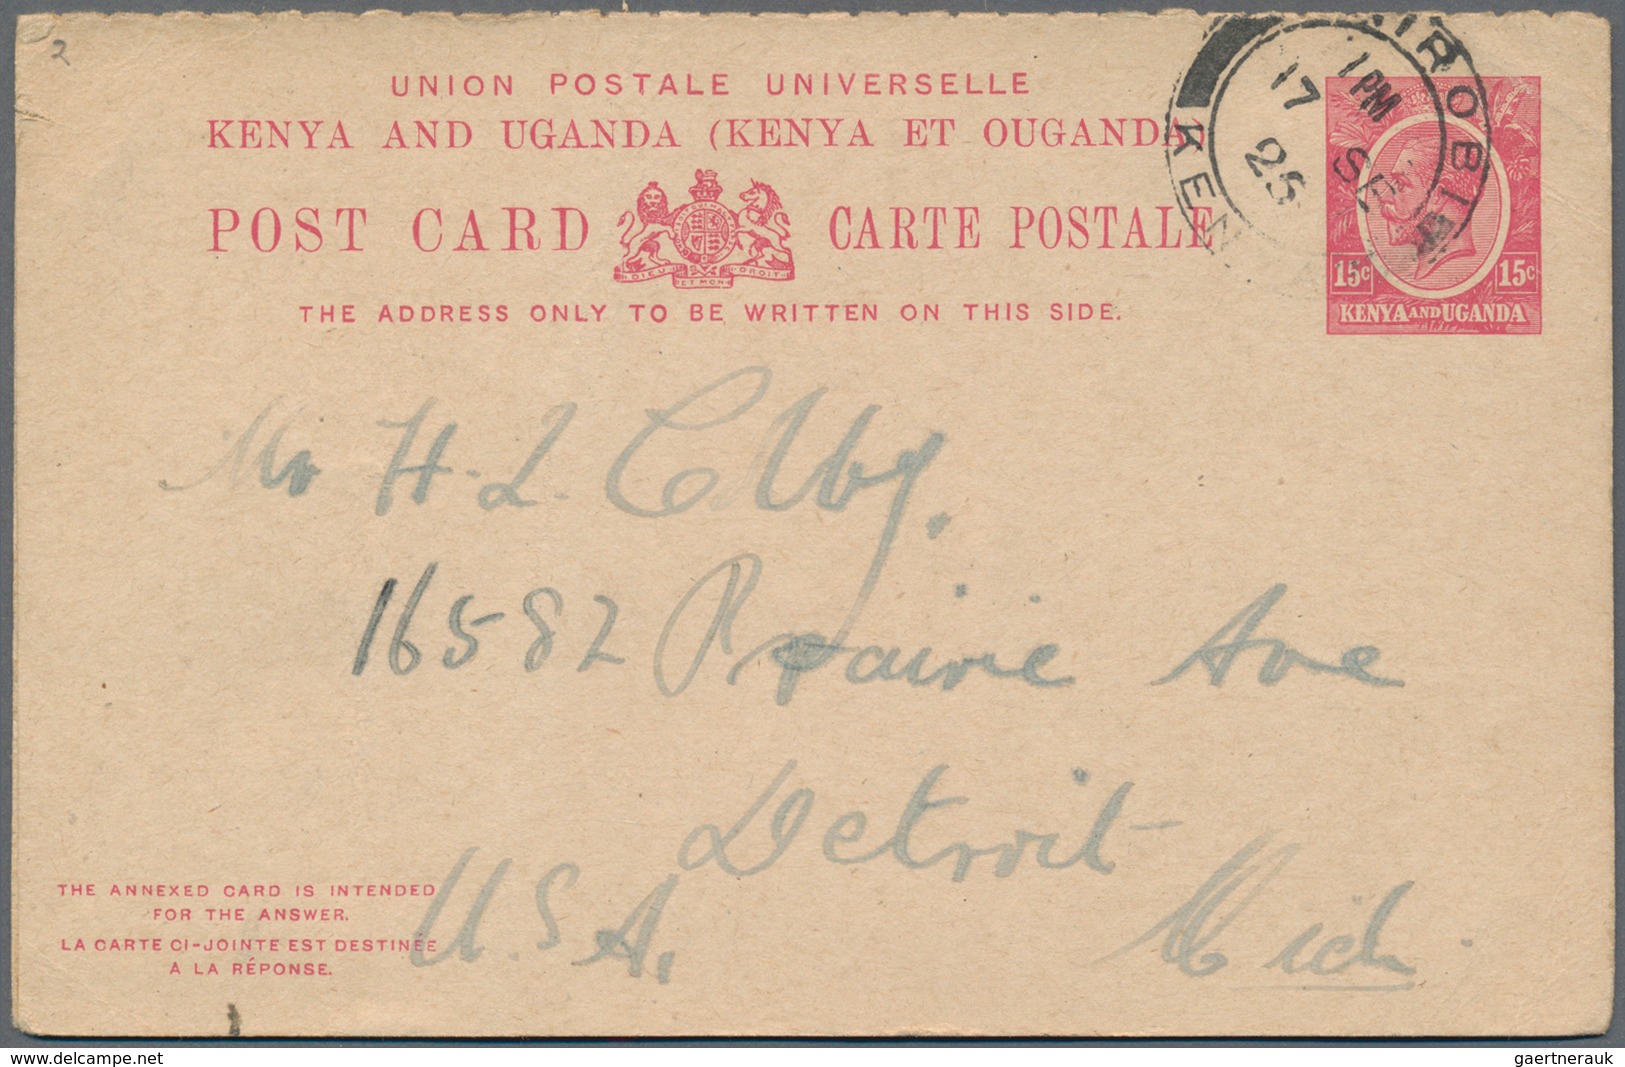 2
UNION POSTALE UNIVERSELLE
KENYA AND UGANDA (KENYA ET OUGANDA)
POST CARD CARTE POSTALE
DIEU ET MON DROIT
THE ADDRESS ONLY TO BE WRITTEN ON THIS SIDE.
NAIROBI
KEN
1 PM
17 SP
25
15c 15c
KENYA AND UGANDA
Mr H. L.
16582 Prairie Ave
Detroit
Mich.
U.S.A.
THE ANNEXED CARD IS INTENDED
FOR THE ANSWER.
LA CARTE CI-JOINTE EST DESTINÉE
A LA RÉPONSE.
www.delcampe.net
gaertnerauk